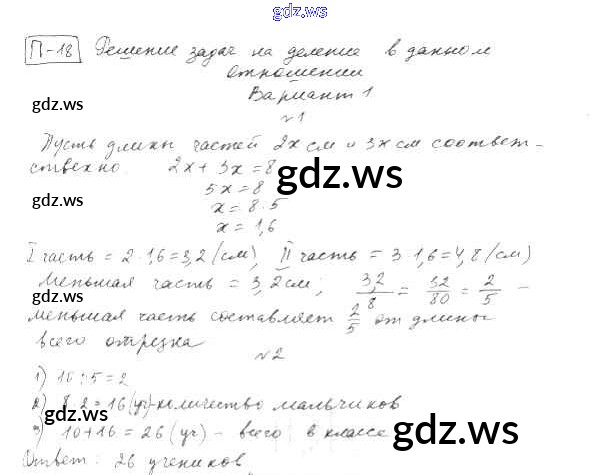 gdz.ws
П-18 Решение задач на деление в данном
отношении
gdz.ws
Вариант 1
№1
Пусть длины частей 2x см и 3x см соответ-
ственно. 2x + 3x = 8
gdz.ws
5x = 8
gdz.ws
x = 8 : 5
x = 1,6
I часть = 2·1,6=3,2 (см), II часть = 3·1,6=4,8 (см)
Меньшая часть = 3,2 см; 3,2/8 = 32/80 = 2/5 -
gdz.ws
меньшая часть составляет 2/5 от длины
всего отрезка
gdz.ws
№2
1) 10:5=2
2) 8·2=16 (уч)-количество мальчиков
gdz.ws
3) 10+16=26 (уч) - всего в классе
gdz.ws
Ответ: 26 учеников